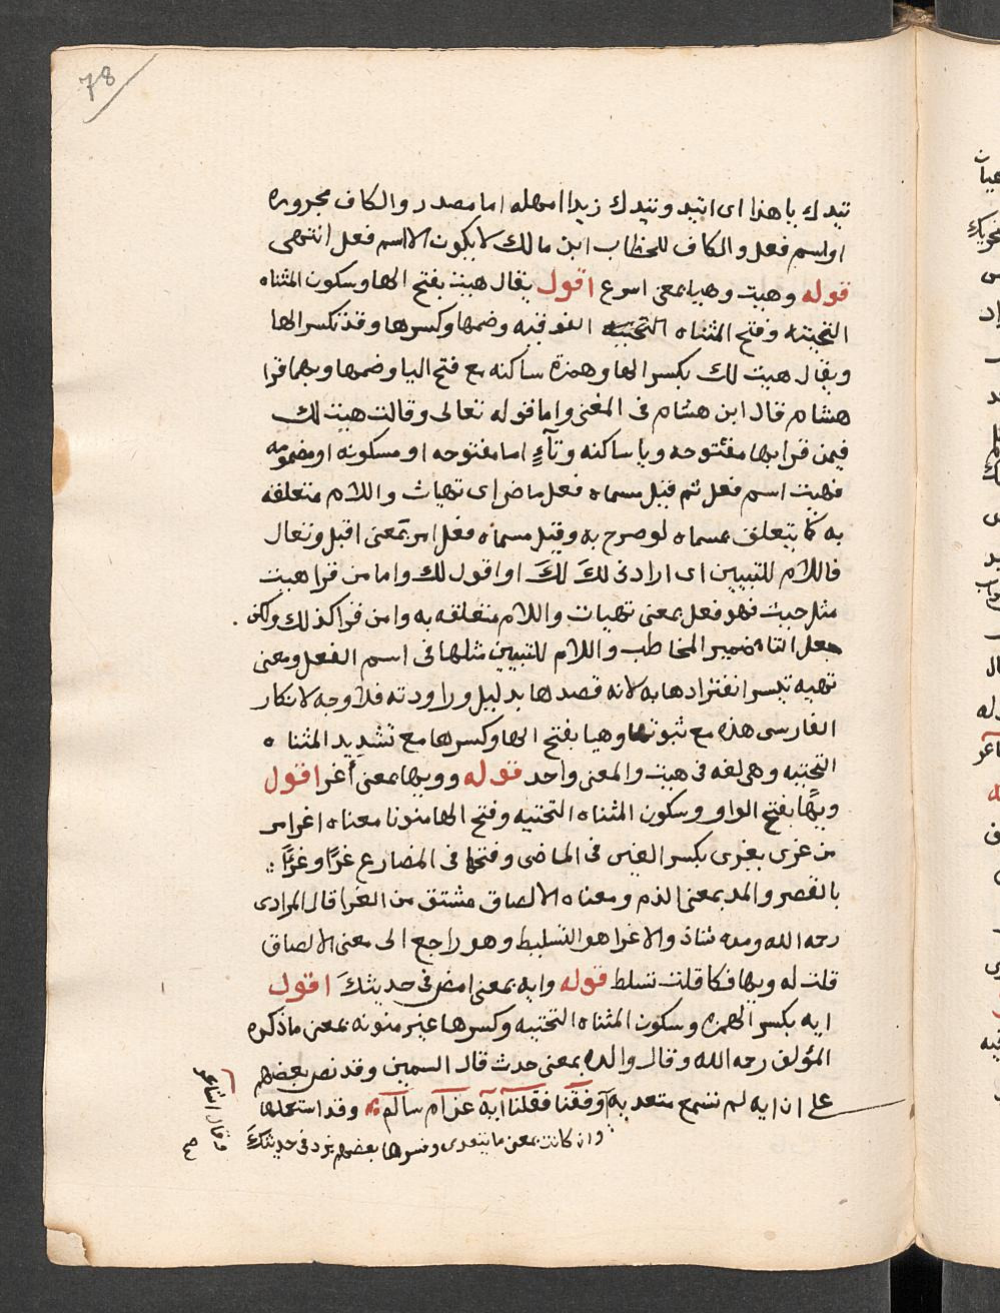 78
تيدك يا هذا اى اتيد وتيدك زيدا امهله اما مصدر والكاف مجروره
او اسم فعل والكاف للخطاب ابن مالك لا يكون الا اسم فعل انتهى
قوله وهيت وهيا بمعنى اسرع اقول يقال هيت بفتح الها وسكون المثناه
التحيته وفتح المثناه التحيته الفوقيه وضمها وكسرها وقد تكسر الها
ويقال هيت لك بكسر الها وهمزه ساكنه مع فتح اليا وضمها وبهما قرا
هشام قال ابن هشام فى المغنى واما قوله تعالى وقالت هيت لك
فيمن قرا بها مفتوحه ويا ساكنه وتآءٍ اما مفتوحه او مسكونه او مضمومه
فهيت اسم فعل ثم قيل مسماه فعل ماض اى تهيات واللام متعلقه
به كما يتعلق بمسماه لو صرح به وقيل مسماه فعل امر بمعنى اقبل وتعال
فاللام للتبيين اى ارادتى لكَ لكَ او اقول لك واما من قرا هيت
مثل جيت فهو فعل بمعنى تهيات واللام متعلقه به وامن قرا كذلك ولكن
جعل التا ضمير المخاطب واللام للتبيين مثلها فى اسم الفعل ومعنى
تهيه تيسر انفرادها به لانه قصدها بدليل وراودته فلا وجه لانكار
الفارسى هذه مع ثبوتها وهيا بفتح الها وكسرها مع تشديد المثناه
التحتيه وهى لغه فى هيت والمعنى واحد قوله وويها بمعنى أغر اقول
ويهًا بفتح الواو وسكون المثناه التحتيه وفتح الها منونا معناه اغرامر
من غرى يغرى بكسر الغين فى الماضى وفتحها فى المضارع غرًا وغرًآ
بالقصر والمد بمعنى الذم ومعناه الالصاق مشتق من الغرا قال المرادى
رحمه الله ومده شاذ والاغرا هو التسليط وهو راجع الى معنى الالصاق
قلت له ويها فكا قلت تسلط قوله وايه بمعنى امض فى حديثكَ اقول
ايه بكسر الهمزه وسكون المثناه التحتيه وكسرها غير منونه بمعنى ماذكره
المؤلف رحمه الله وقال والده بمعنى حدث قال السمين وقد نص بعضهم
على ان ايه لم تسمع متعديه وَقَفْنا فقلنا ايه عن ام سالم وقد استعملها
وقال الشاعر
وان كانت بمعنى ما يتعدى وفسرها بعضهم بزد فى حديثكَ